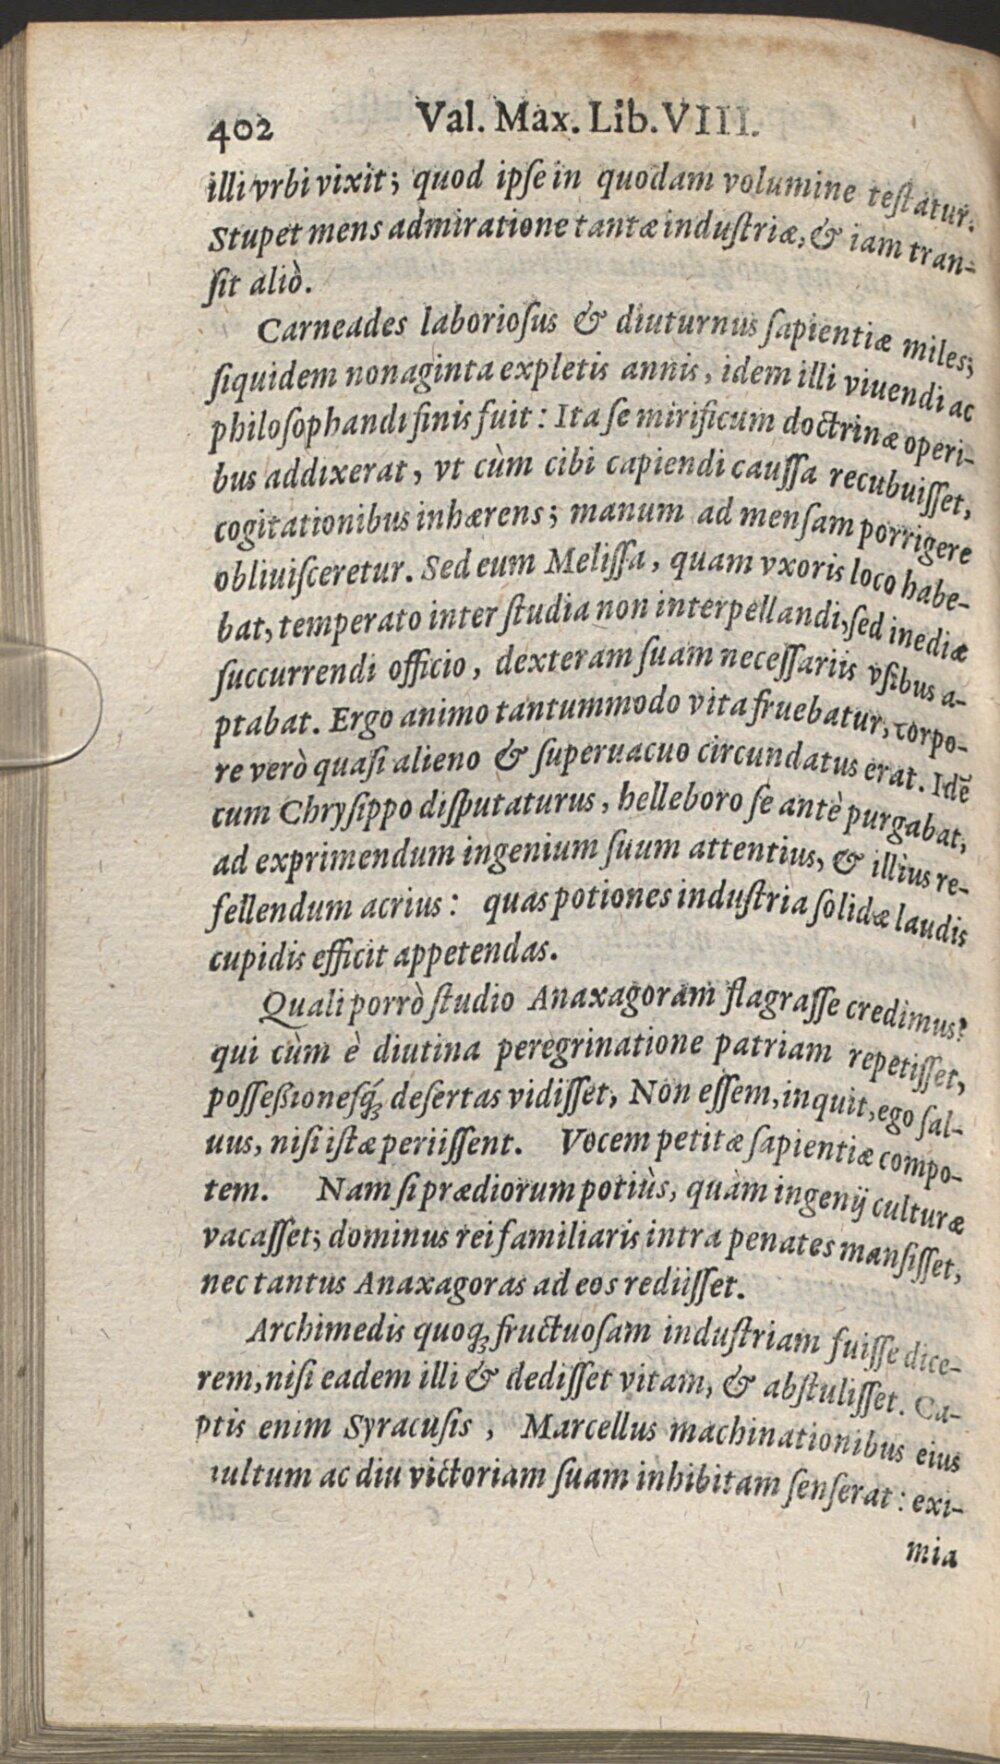 402 Val. Max. Lib. VIII.
illi vrbi vixit; quod ipſe in quodam volumine teſtatur.
Stupet mens admiratione tantæ induſtriæ, & iam tran-
ſit aliò.
Carneades laborioſus & diuturnus ſapientiæ miles;
ſiquidem nonaginta expletis annis, idem illi viuendi ac
philoſophandi finis fuit: Ita ſe mirificum doctrinæ operi-
bus addixerat, vt cùm cibi capiendi cauſſa recubuiſſet,
cogitationibus inhærens; manum ad menſam porrigere
obliuiſceretur. Sed eum Meliſſa, quam vxoris loco habe-
bat, temperato inter ſtudia non interpellandi, ſed inediæ
ſuccurrendi officio, dexteram ſuam neceſſariis vſibus a-
ptabat. Ergo animo tantummodo vita fruebatur, corpo-
re verò quaſi alieno & ſuperuacuo circundatus erat. Idē
cum Chryſippo diſputaturus, helleboro ſe antè purgabat,
ad exprimendum ingenium ſuum attentius, & illius re-
fellendum acrius: quas potiones induſtria ſolidæ laudis
cupidis efficit appetendas.
Quali porrò ſtudio Anaxagoram flagraſſe credimus?
qui cùm è diutina peregrinatione patriam repetiſſet,
poſſeßioneſq́; deſertas vidiſſet, Non eſſem, inquit, ego ſal-
uus, niſi iſtæ periiſſent. Vocem petitæ ſapientiæ compo-
tem. Nam ſi prædiorum potiùs, quàm ingenij culturæ
vacaſſet; dominus rei familiaris intra penates manſiſſet,
nec tantus Anaxagoras ad eos rediiſſet.
Archimedis quoq; fructuoſam induſtriam fuiſſe dice-
rem, niſi eadem illi & dediſſet vitam, & abſtuliſſet. Ca-
ptis enim Syracuſis, Marcellus machinationibus eius
ultum ac diu victoriam ſuam inhibitam ſenſerat: exi-
mia